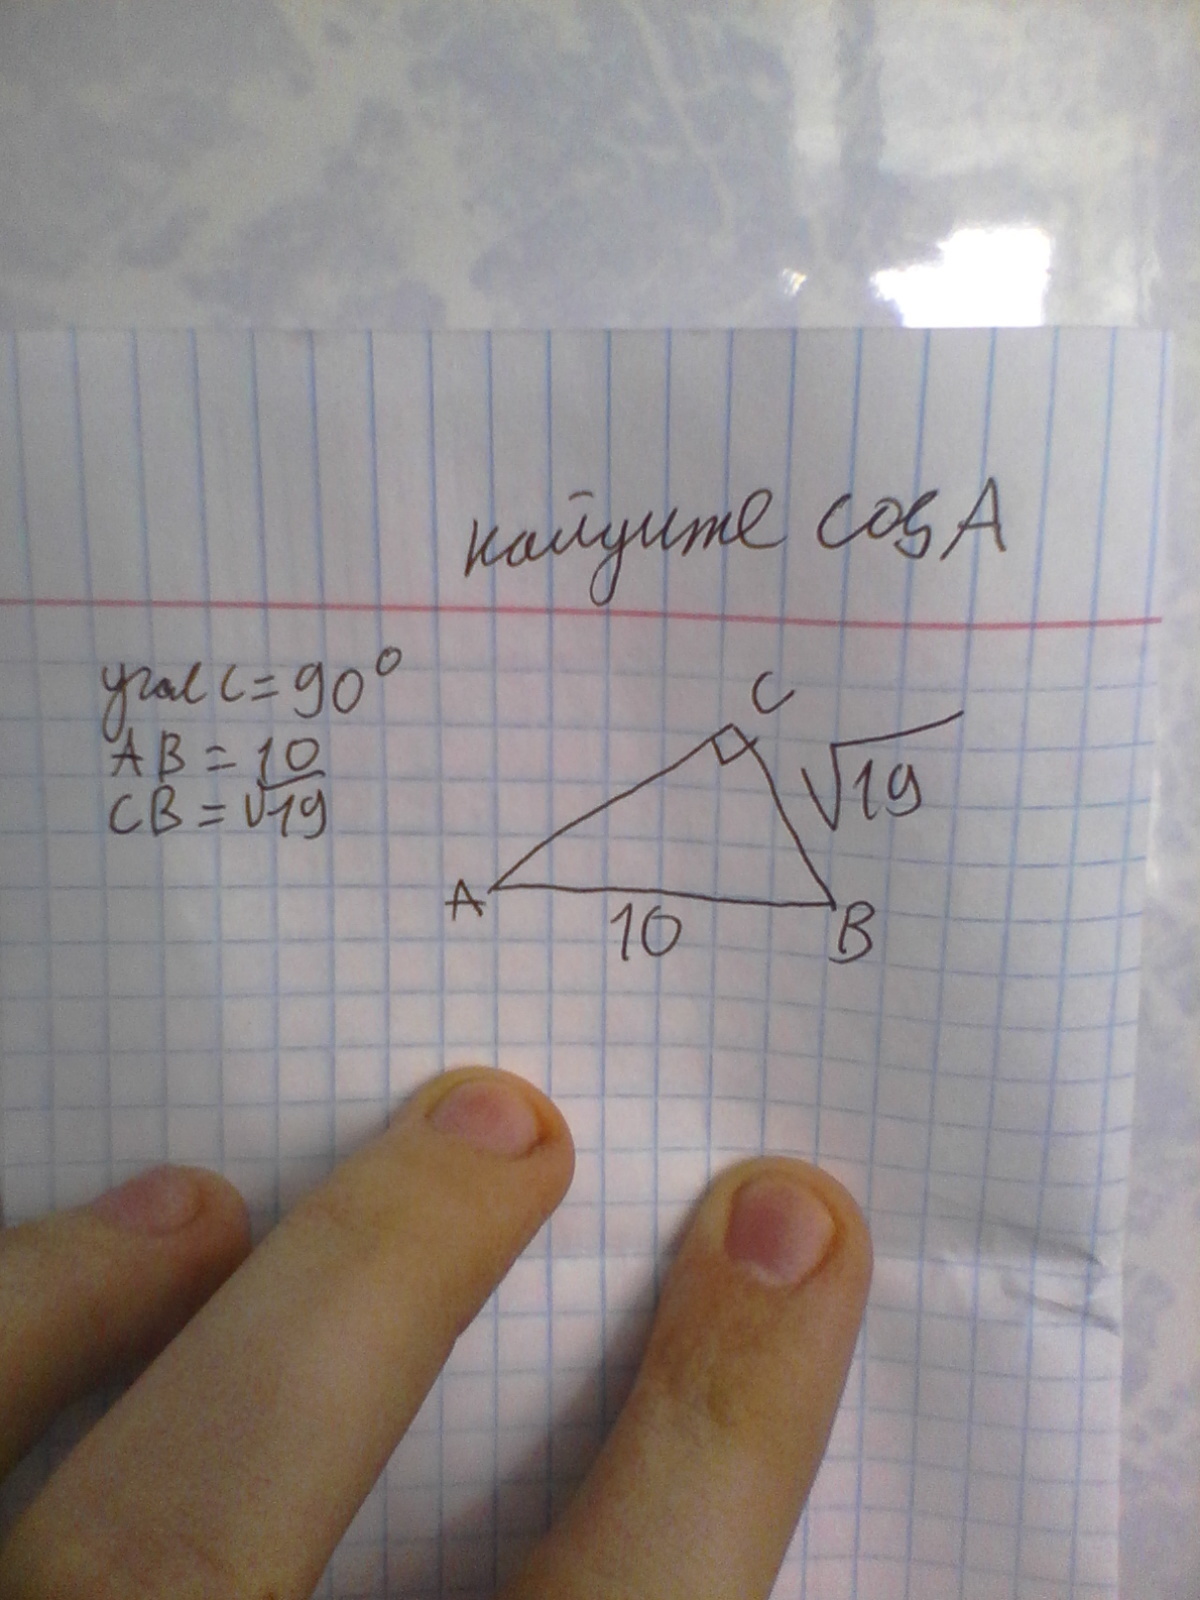 найдите cos A
угол C = 90°
AB = 10
CB = √19
C
√19
A
10
B